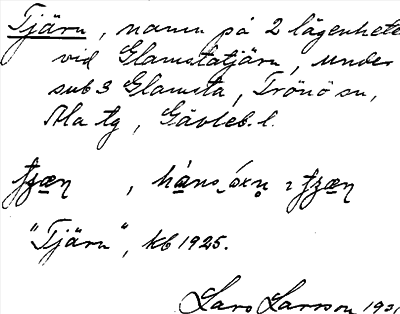 Tjärn, namn på 2 lägenhete
vid Glamstatjärn, under
sub 3 Glamsta, Trönö sn,
Ala tg, Gävleb. l.
"Tjärn", kb 1925.
Lars Larsson 1931